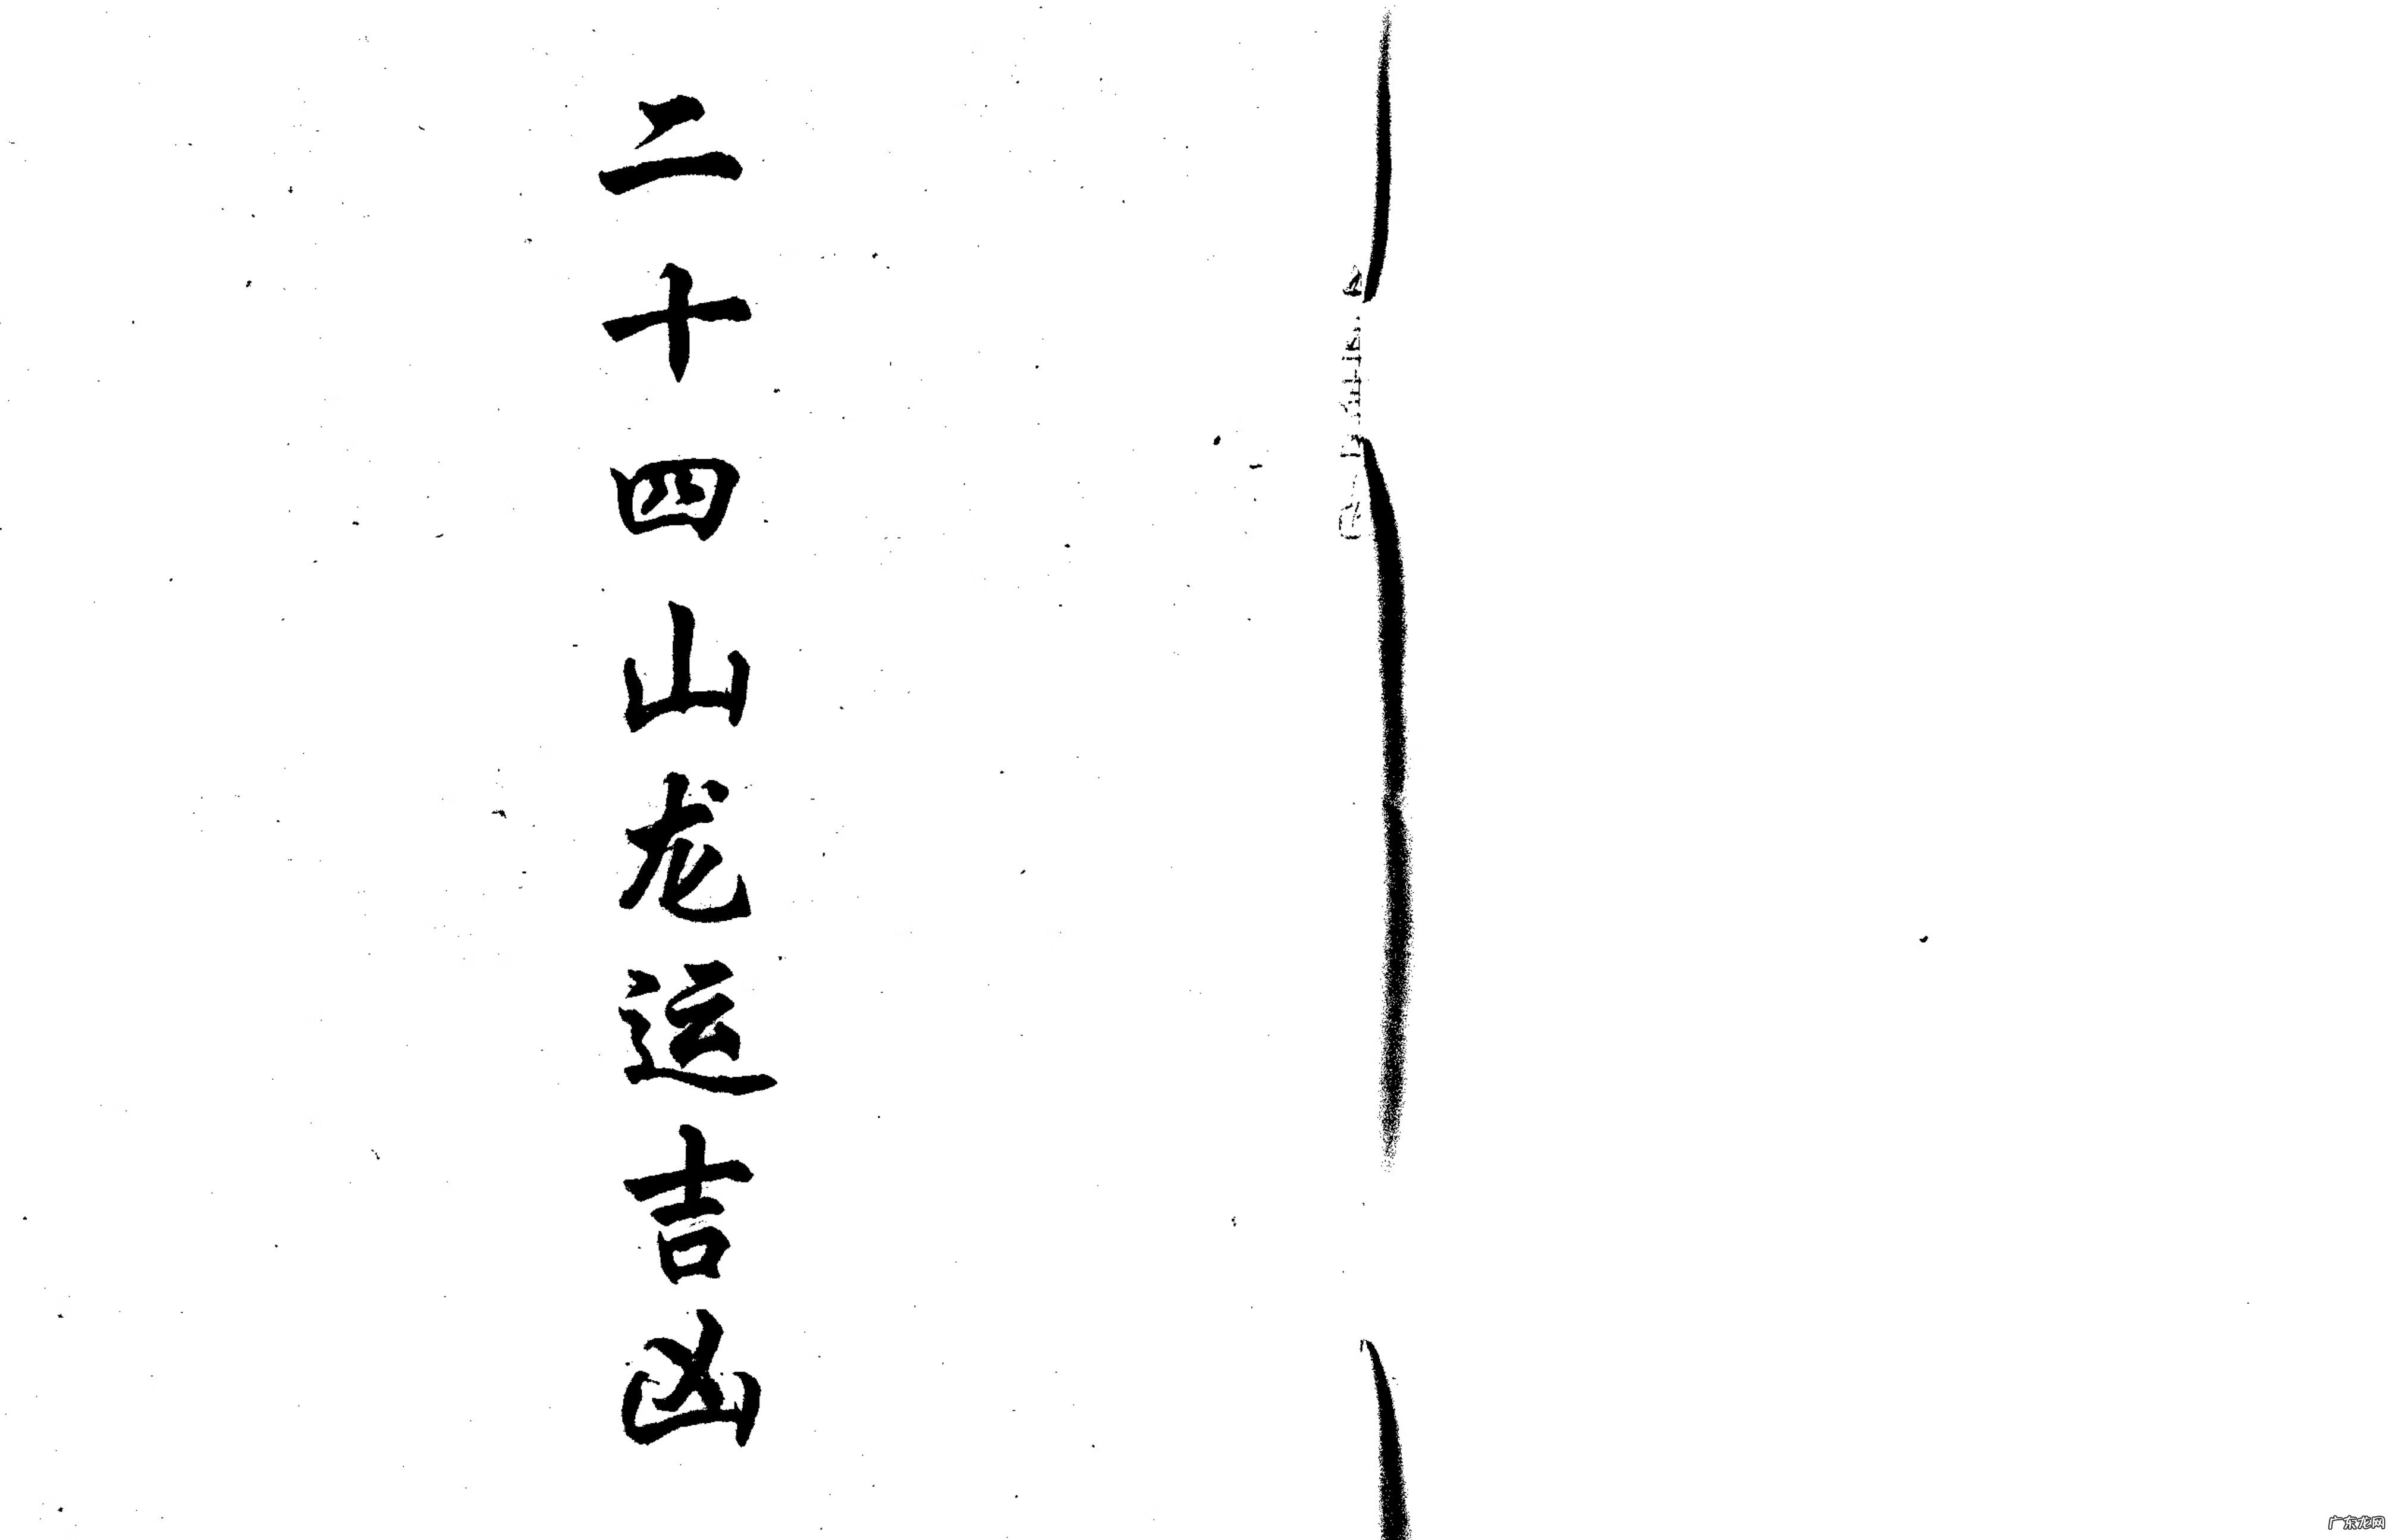 二十四山龙运吉凶
广东龙网